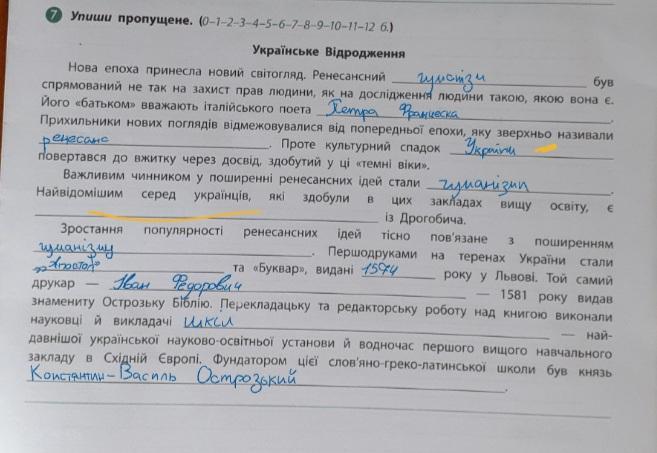 7 Упиши пропущене. (0–1–2–3–4–5–6–7–8–9–10–11–12 б.)
Українське Відродження
Нова епоха принесла новий світогляд. Ренесансний гуманізм був
спрямований не так на захист прав людини, як на дослідження людини такою, якою вона є.
Його «батьком» вважають італійського поета Петра Франческа.
Прихильники нових поглядів відмежовувалися від попередньої епохи, яку зверхньо називали
ренесанс. Проте культурний спадок України
повертався до вжитку через досвід, здобутий у ці «темні віки».
Важливим чинником у поширенні ренесансних ідей стали гуманізми.
Найвідомішим серед українців, які здобули в цих закладах вищу освіту, є
із Дрогобича.
Зростання популярності ренесансних ідей тісно пов'язане з поширенням
гуманізму. Першодруками на теренах України стали
„Апостол" та «Буквар», видані 1574 року у Львові. Той самий
друкар — Іван Федорович — 1581 року видав
знамениту Острозьку Біблію. Перекладацьку та редакторську роботу над книгою виконали
науковці й викладачі шкіл — най-
давнішої української науково-освітньої установи й водночас першого вищого навчального
закладу в Східній Європі. Фундатором цієї слов'яно-греко-латинської школи був князь
Константин-Василь Острозький.